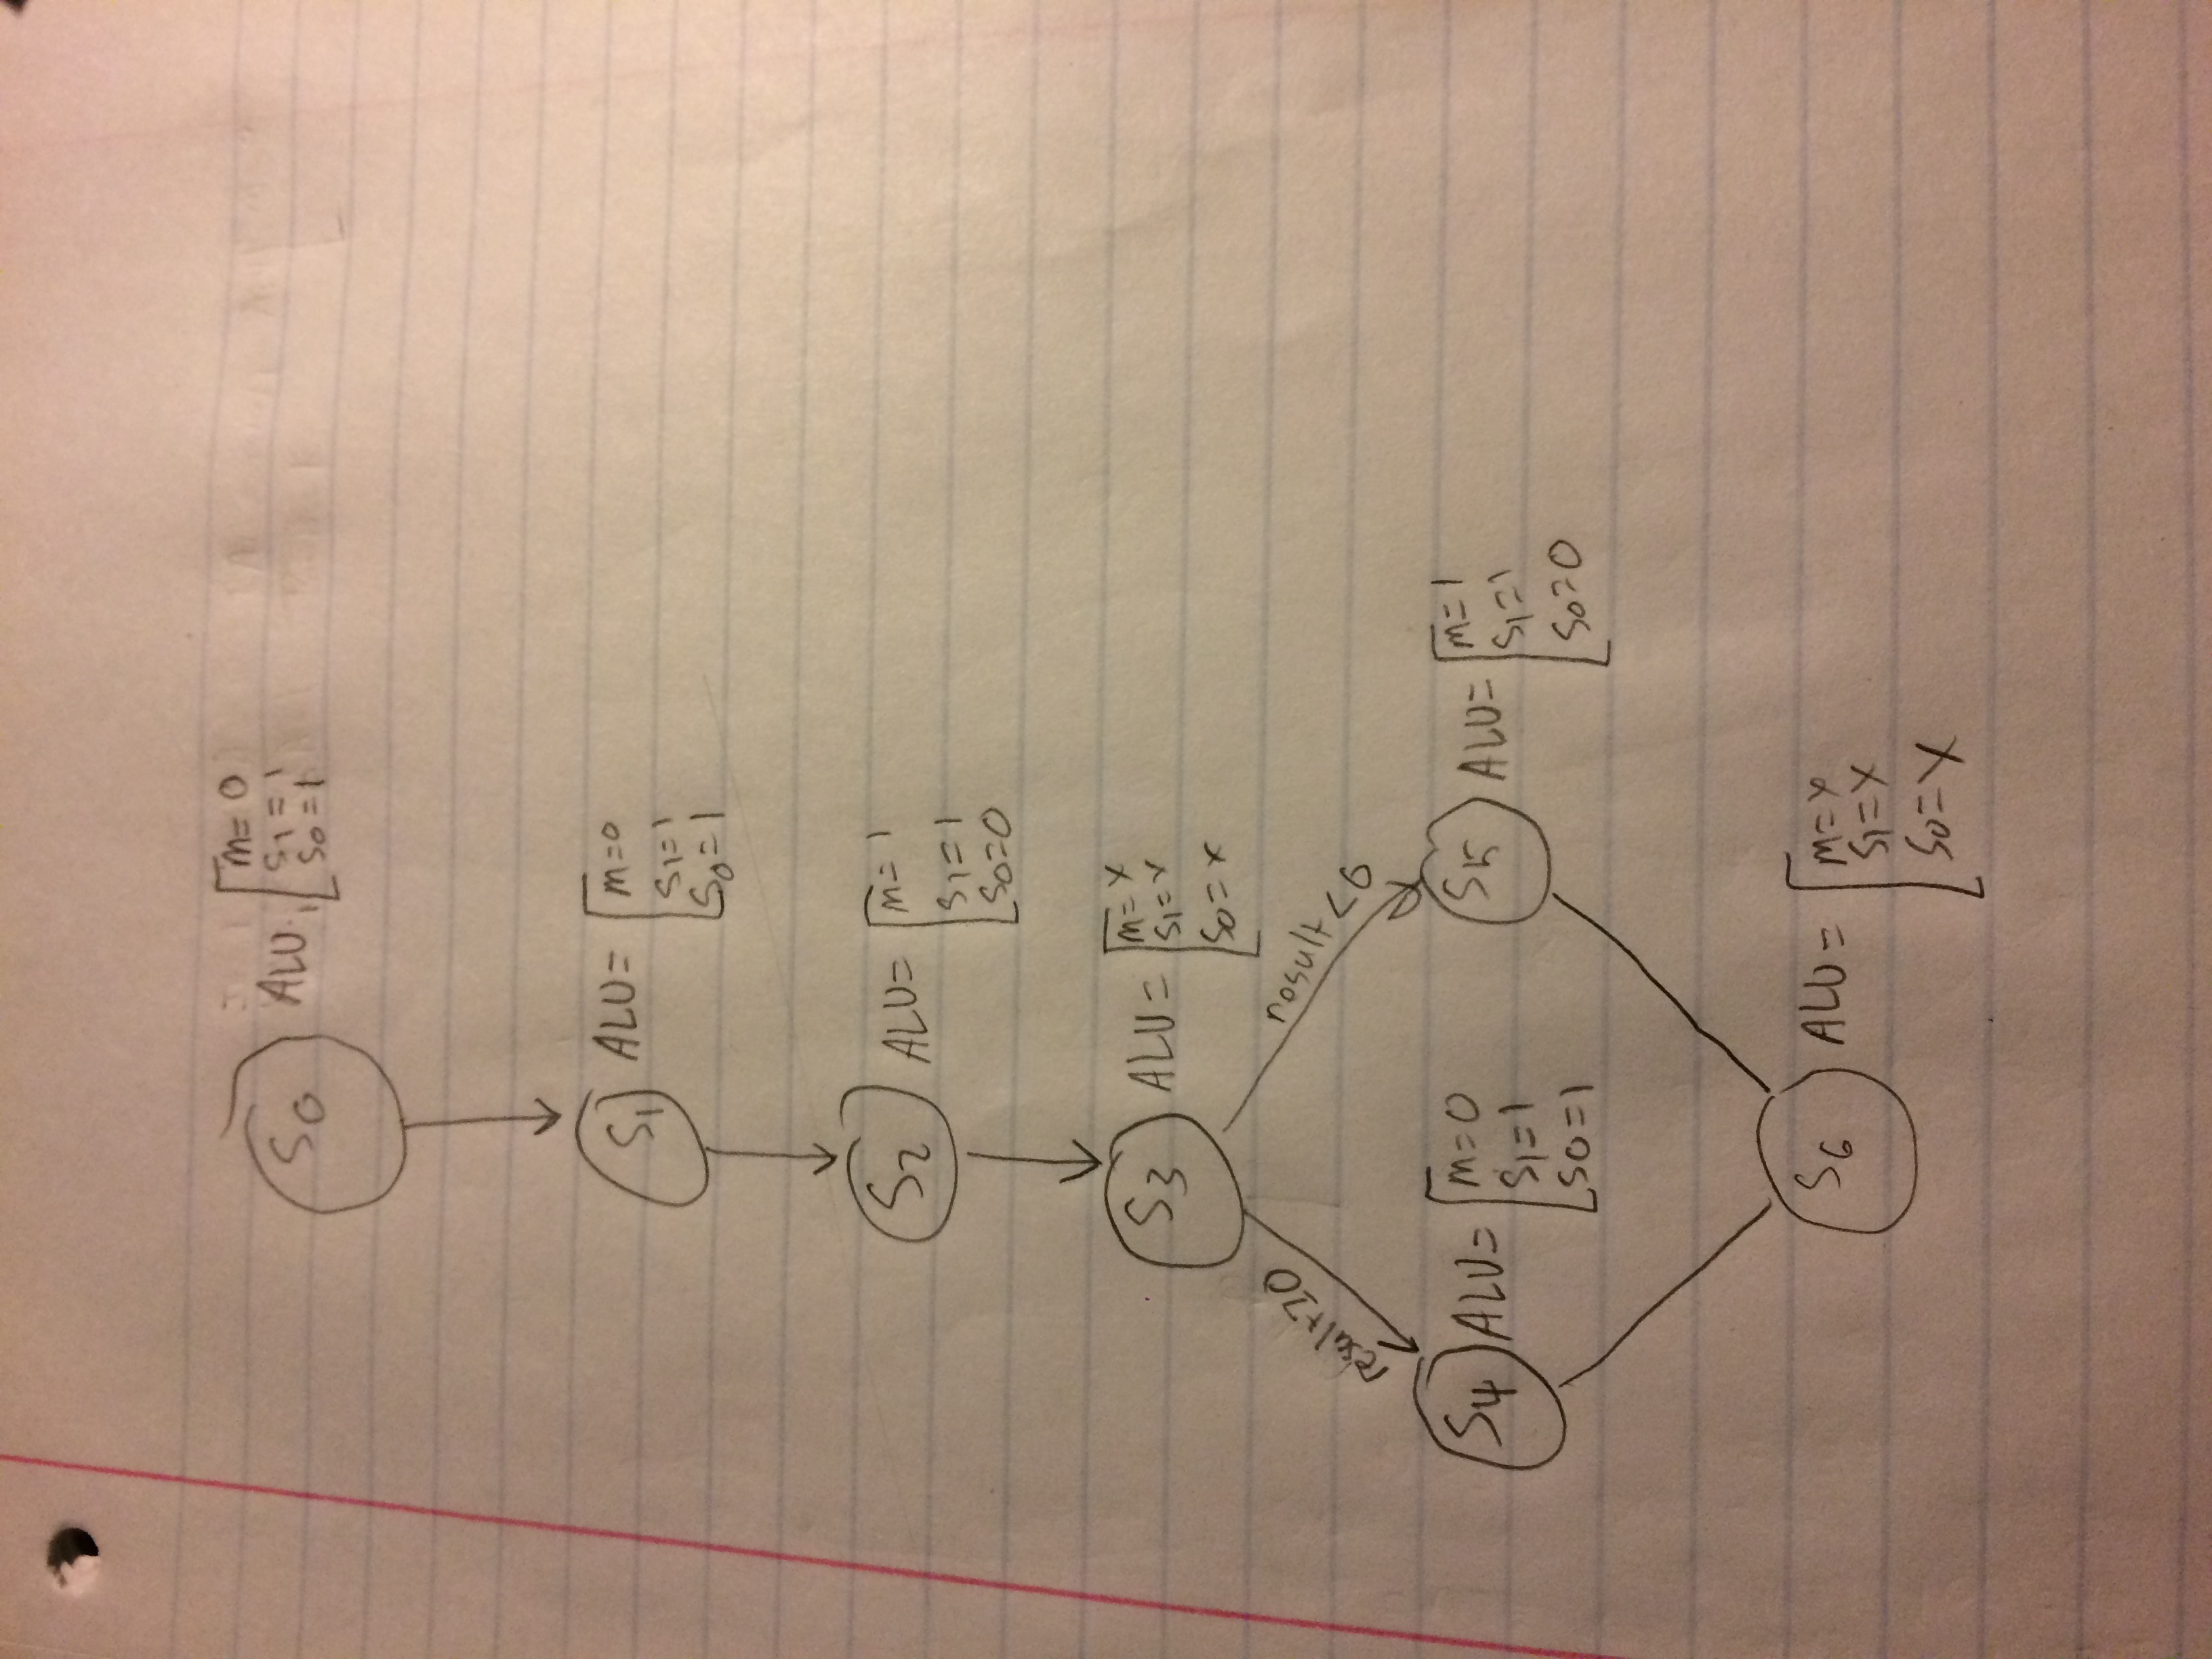 S0 ALU
m= 0
S1 = 1
S0 = 1
S1 ALU=
m=0
S1=1
S0=1
S2 ALU=
m= 1
S1=1
S0=0
S3 ALU=
m= x
S1= x
S0= x
result≥0
rosult <0
S4 ALU=
m=0
S1=1
S0=1
S5 ALU=
m=1
S1=1
S0=0
S6 ALU=
m=x
S1=x
S0=x